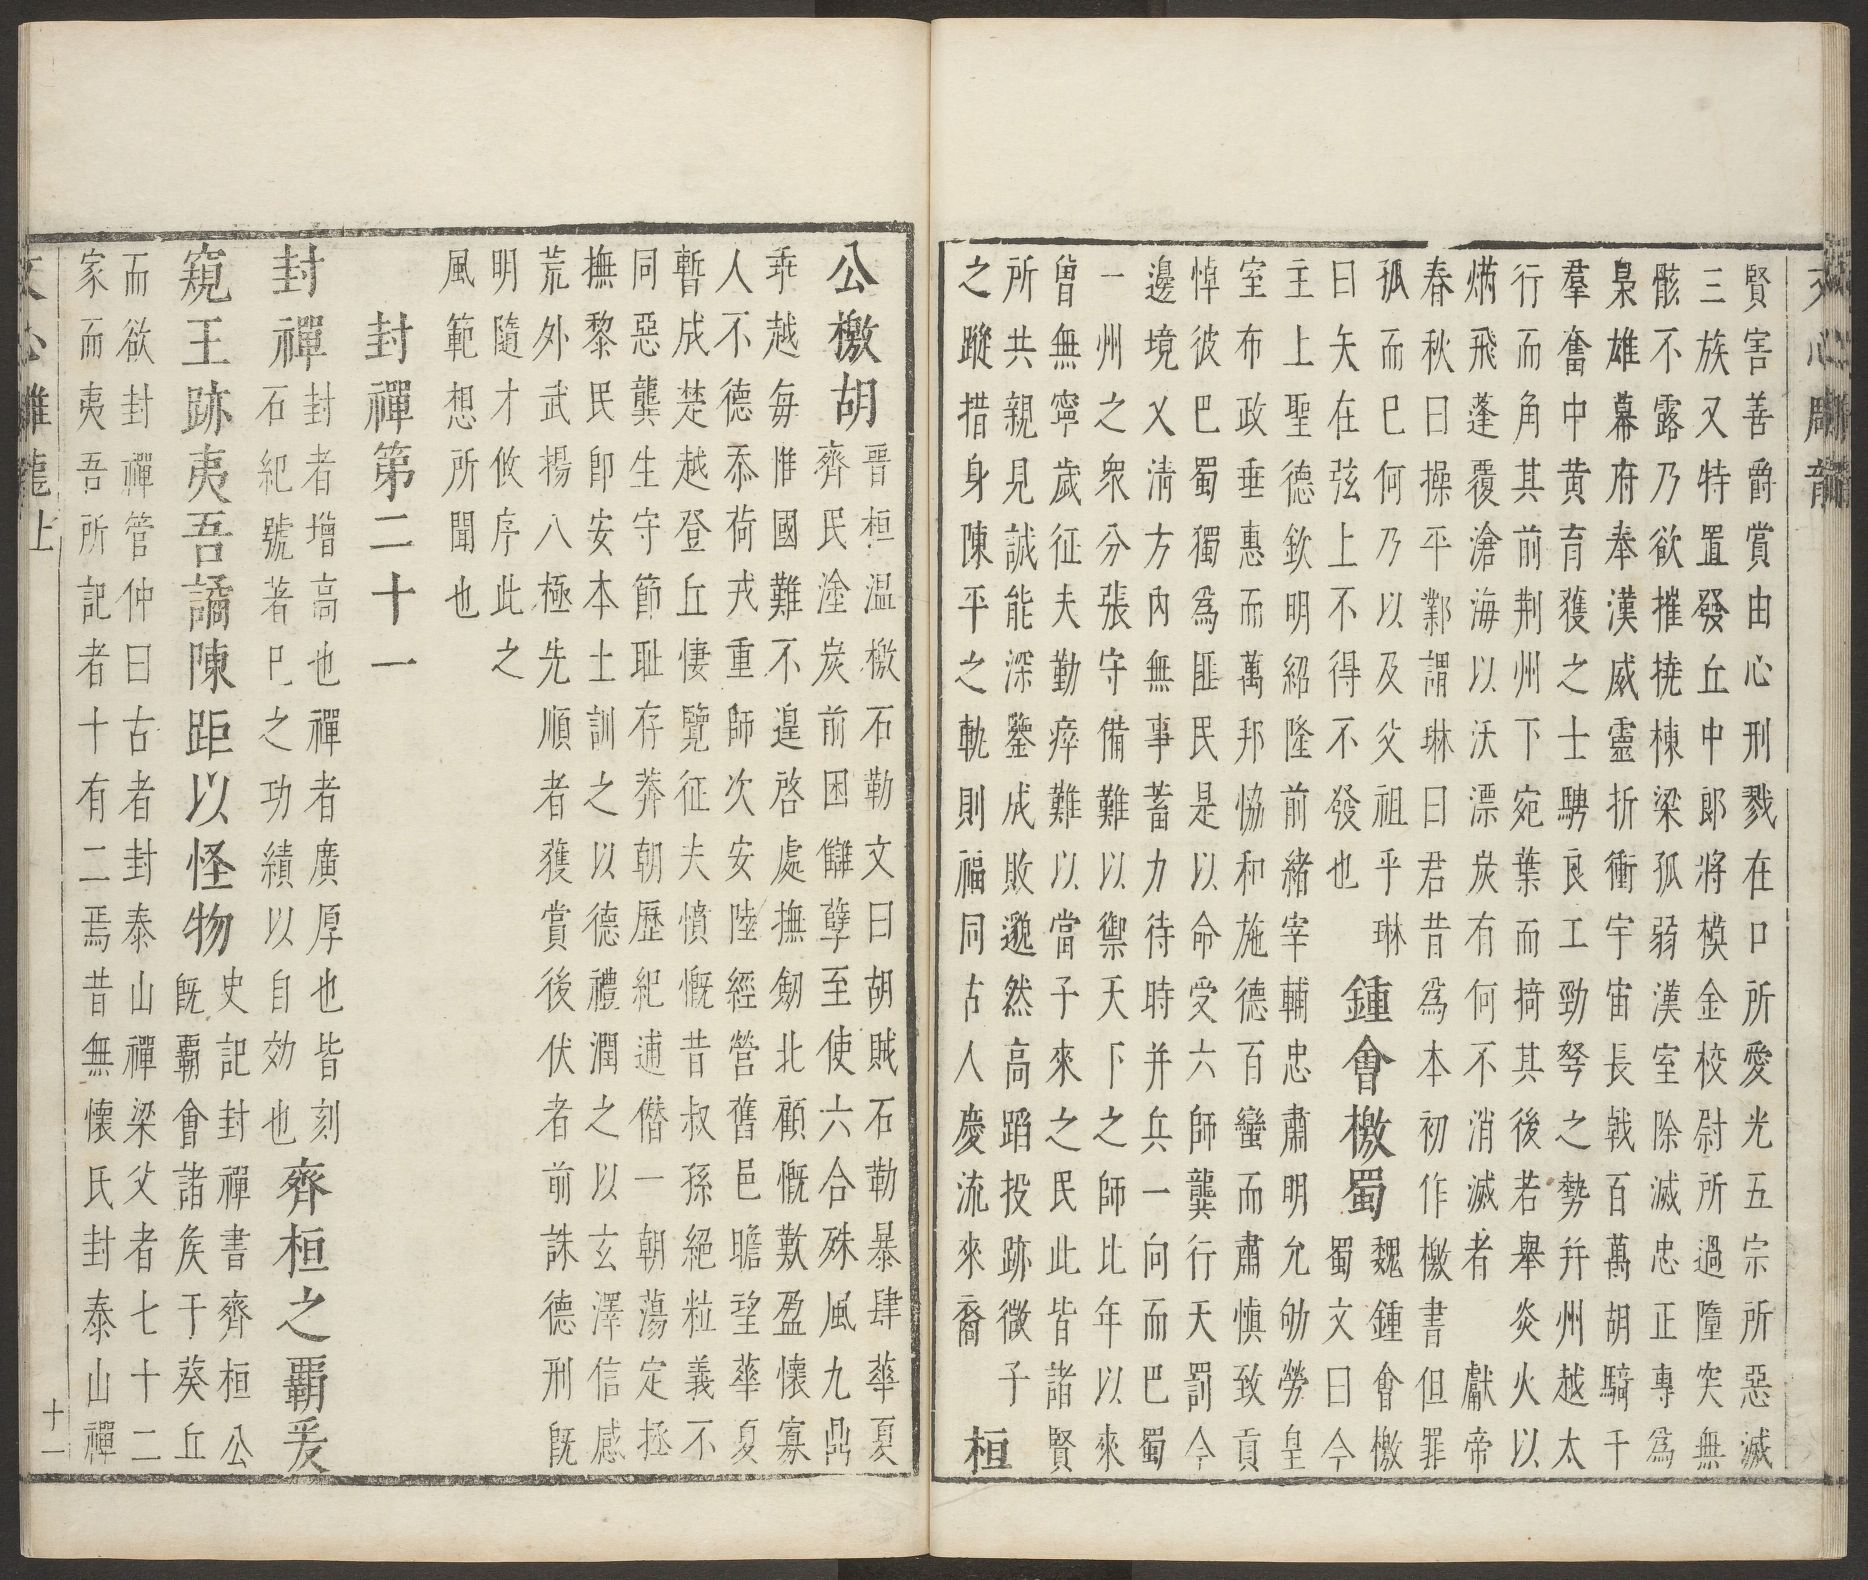 賢害善爵賞由心刑戮在口所愛光五宗所惡滅
三族又特置發丘中郎將模金校尉所過隳突無
骸不露乃欲摧撓棟梁孤弱漢室除滅忠正專為
梟雄幕府奉漢威靈折衝宇宙長戟百萬胡騎千
羣奮中黃育獲之士騁良工勁弩之勢并州越太
行而角其前荆州下宛葉而掎其後若舉炎火以
焫飛蓬覆滄海以沃漂炭有何不消滅者 獻帝
春秋曰操平鄴謂琳曰君昔爲本初作檄書但罪
孤而巳何乃以及父祖乎琳
曰矢在弦上不得不發也
鍾會檄蜀
魏鍾會檄
蜀文曰今
主上聖德欽明紹隆前緒宰輔忠肅明允劬勞皇
室布政垂惠而萬邦恊和施德百蠻而肅慎致貢
悼彼巴蜀獨爲匪民是以命受六師龔行天罰今
邊境乂清方內無事蓄力待時并兵一向而巴蜀
一州之衆分張守備難以禦天下之師比年以來
曾無寧歲征夫勤瘁難以當子來之民此皆諸賢
所共親見誠能深鑒成敗邈然高蹈投跡微子
之蹤措身陳平之軌則福同古人慶流來裔
桓
公檄胡
晋桓温檄石勒文曰胡賊石勒暴肆華夏
齊民塗炭前困讎孽至使六合殊風九鼎
乖越毎惟國難不遑啓處撫劒北顧慨歎盈懷寡
人不德忝荷戎重師次安陸經營舊邑瞻望華夏
暫成楚越登丘悽覽征夫憤慨昔叔孫絕粒義不
同惡龔生守節耻存莽朝歷紀逋僭一朝蕩定拯
撫黎民卽安本土訓之以德禮潤之以玄澤信感
荒外武揚八極先順者獲賞後伏者前誅德刑旣
明隨才攸序此之
風範想所聞也
封禪第二十一
封禪
封者增高也禪者廣厚也皆刻
石紀號著巳之功績以自効也
齊桓之覇爰
窺王跡夷吾譎陳距以怪物
史記封禪書齊桓公
旣覇會諸矦于葵丘
而欲封禪管仲曰古者封泰山禪梁父者七十二
家而夷吾所記者十有二焉昔無懷氏封泰山禪
十一